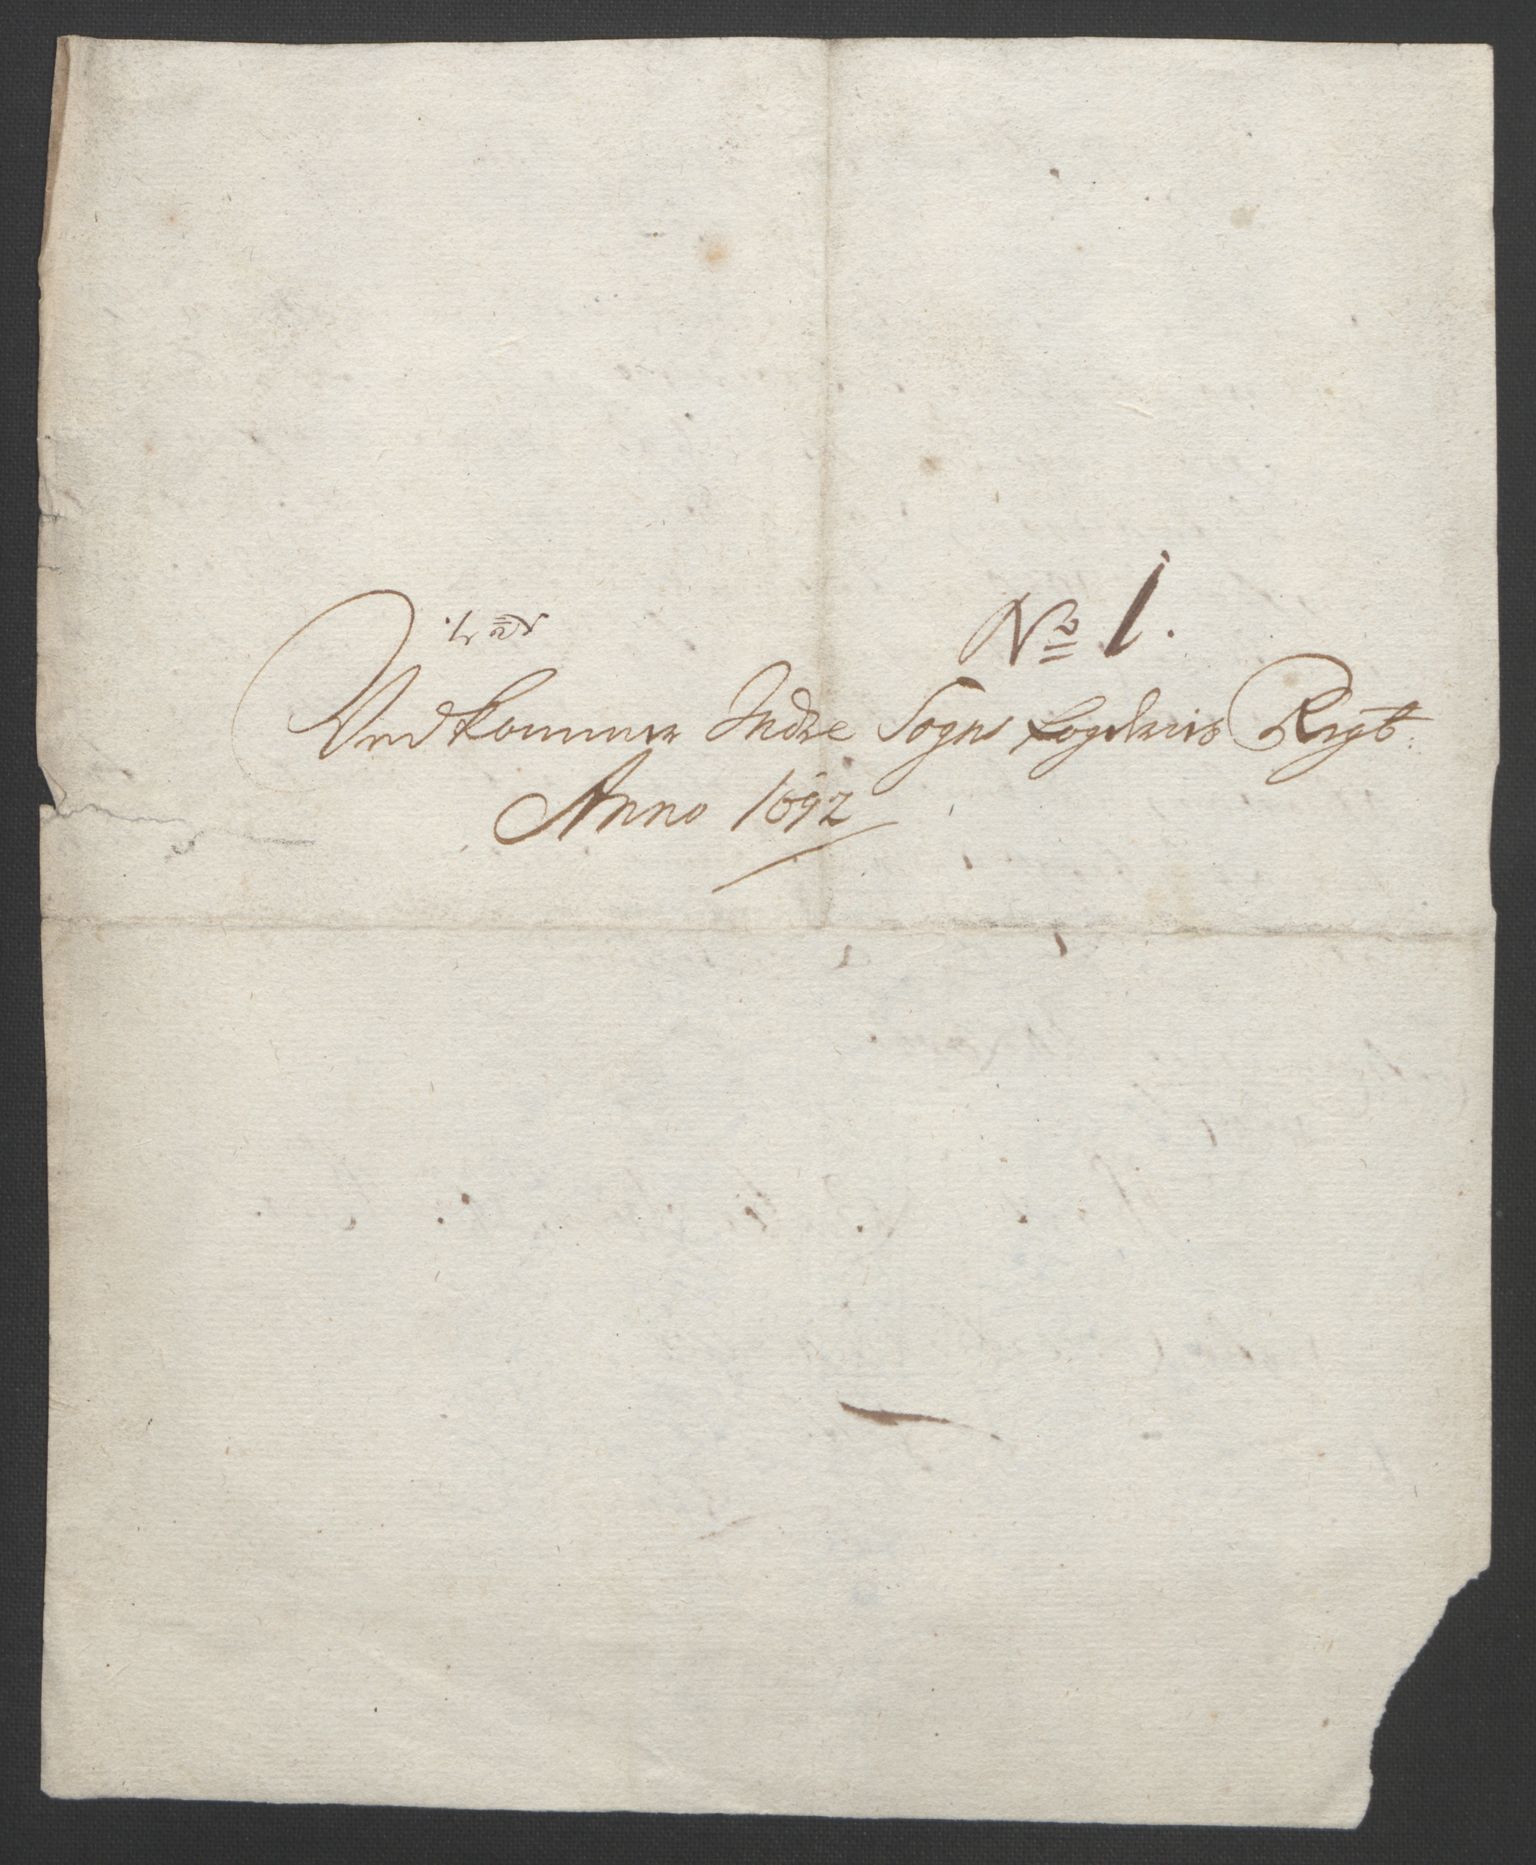 No 1.
Vedkommer Indre Sogns fogderies Regt:
Anno 1692